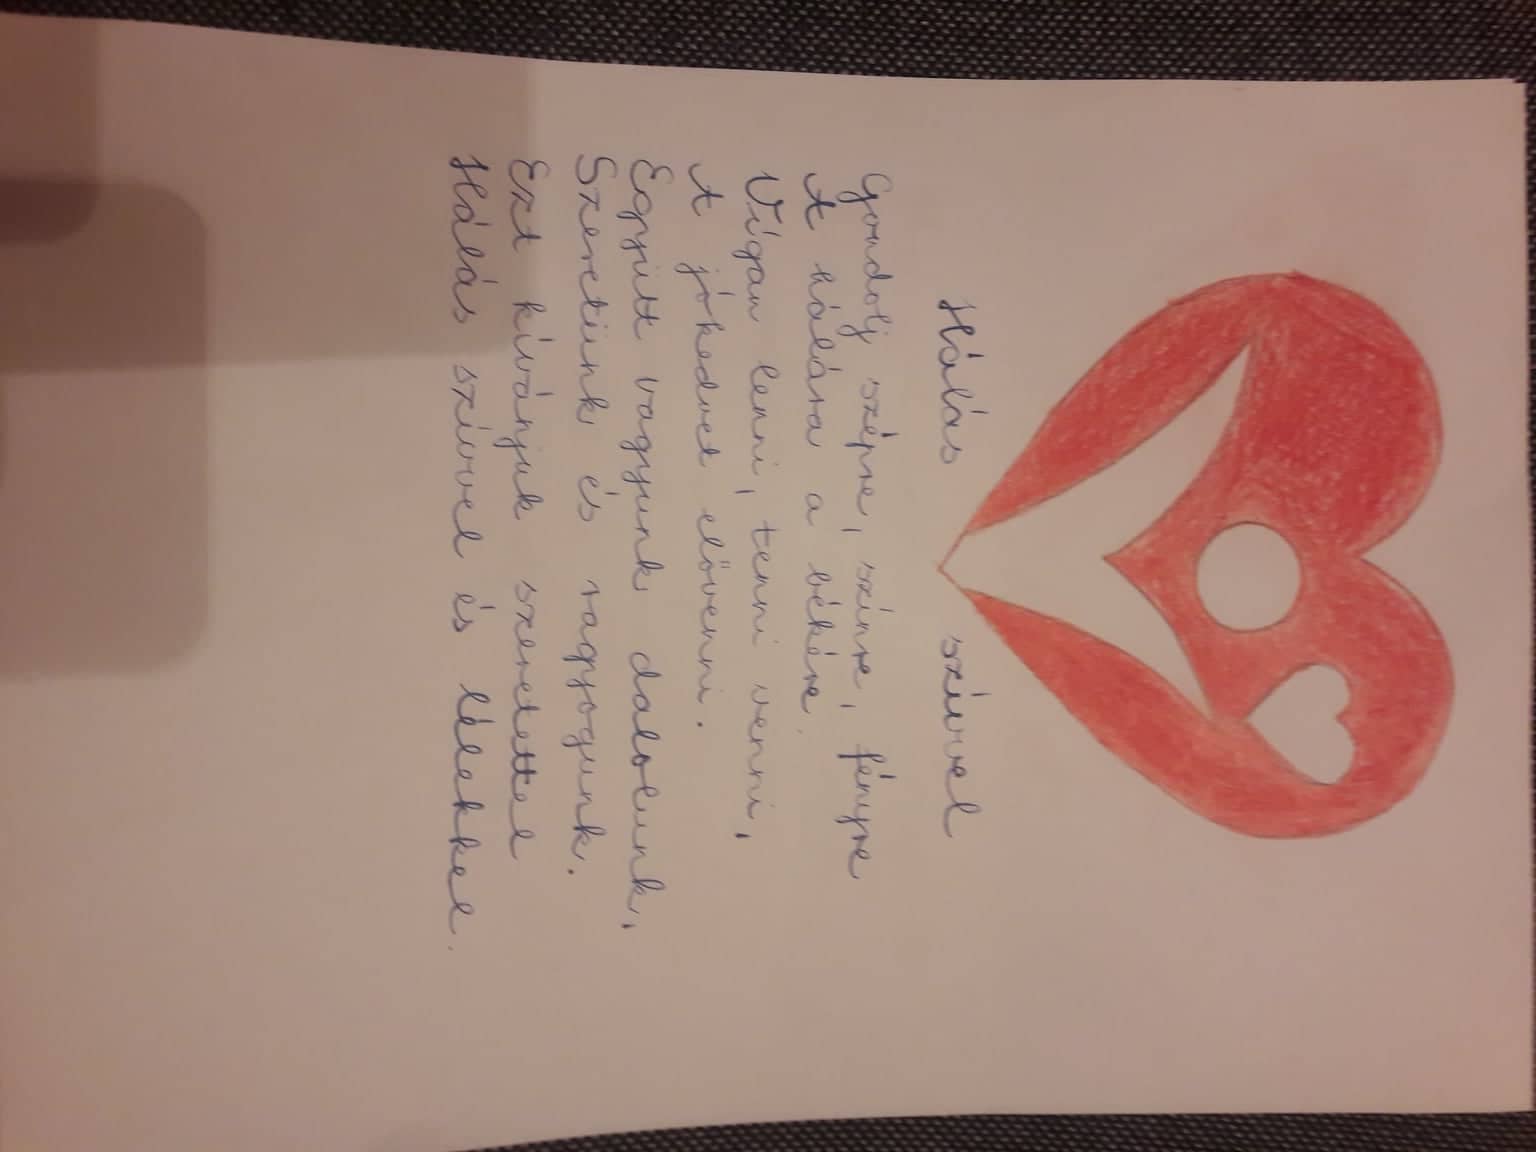 Hálás szívvel
Gondolj szépre, színre, fényre
A hálára a békére.
Vígan lenni, tenni venni,
A jókedvet elővenni.
Együtt vagyunk dalolunk,
Szeretünk és ragyogunk.
Ezt kívánjuk szeretettel
Hálás szívvel és lélekkel.